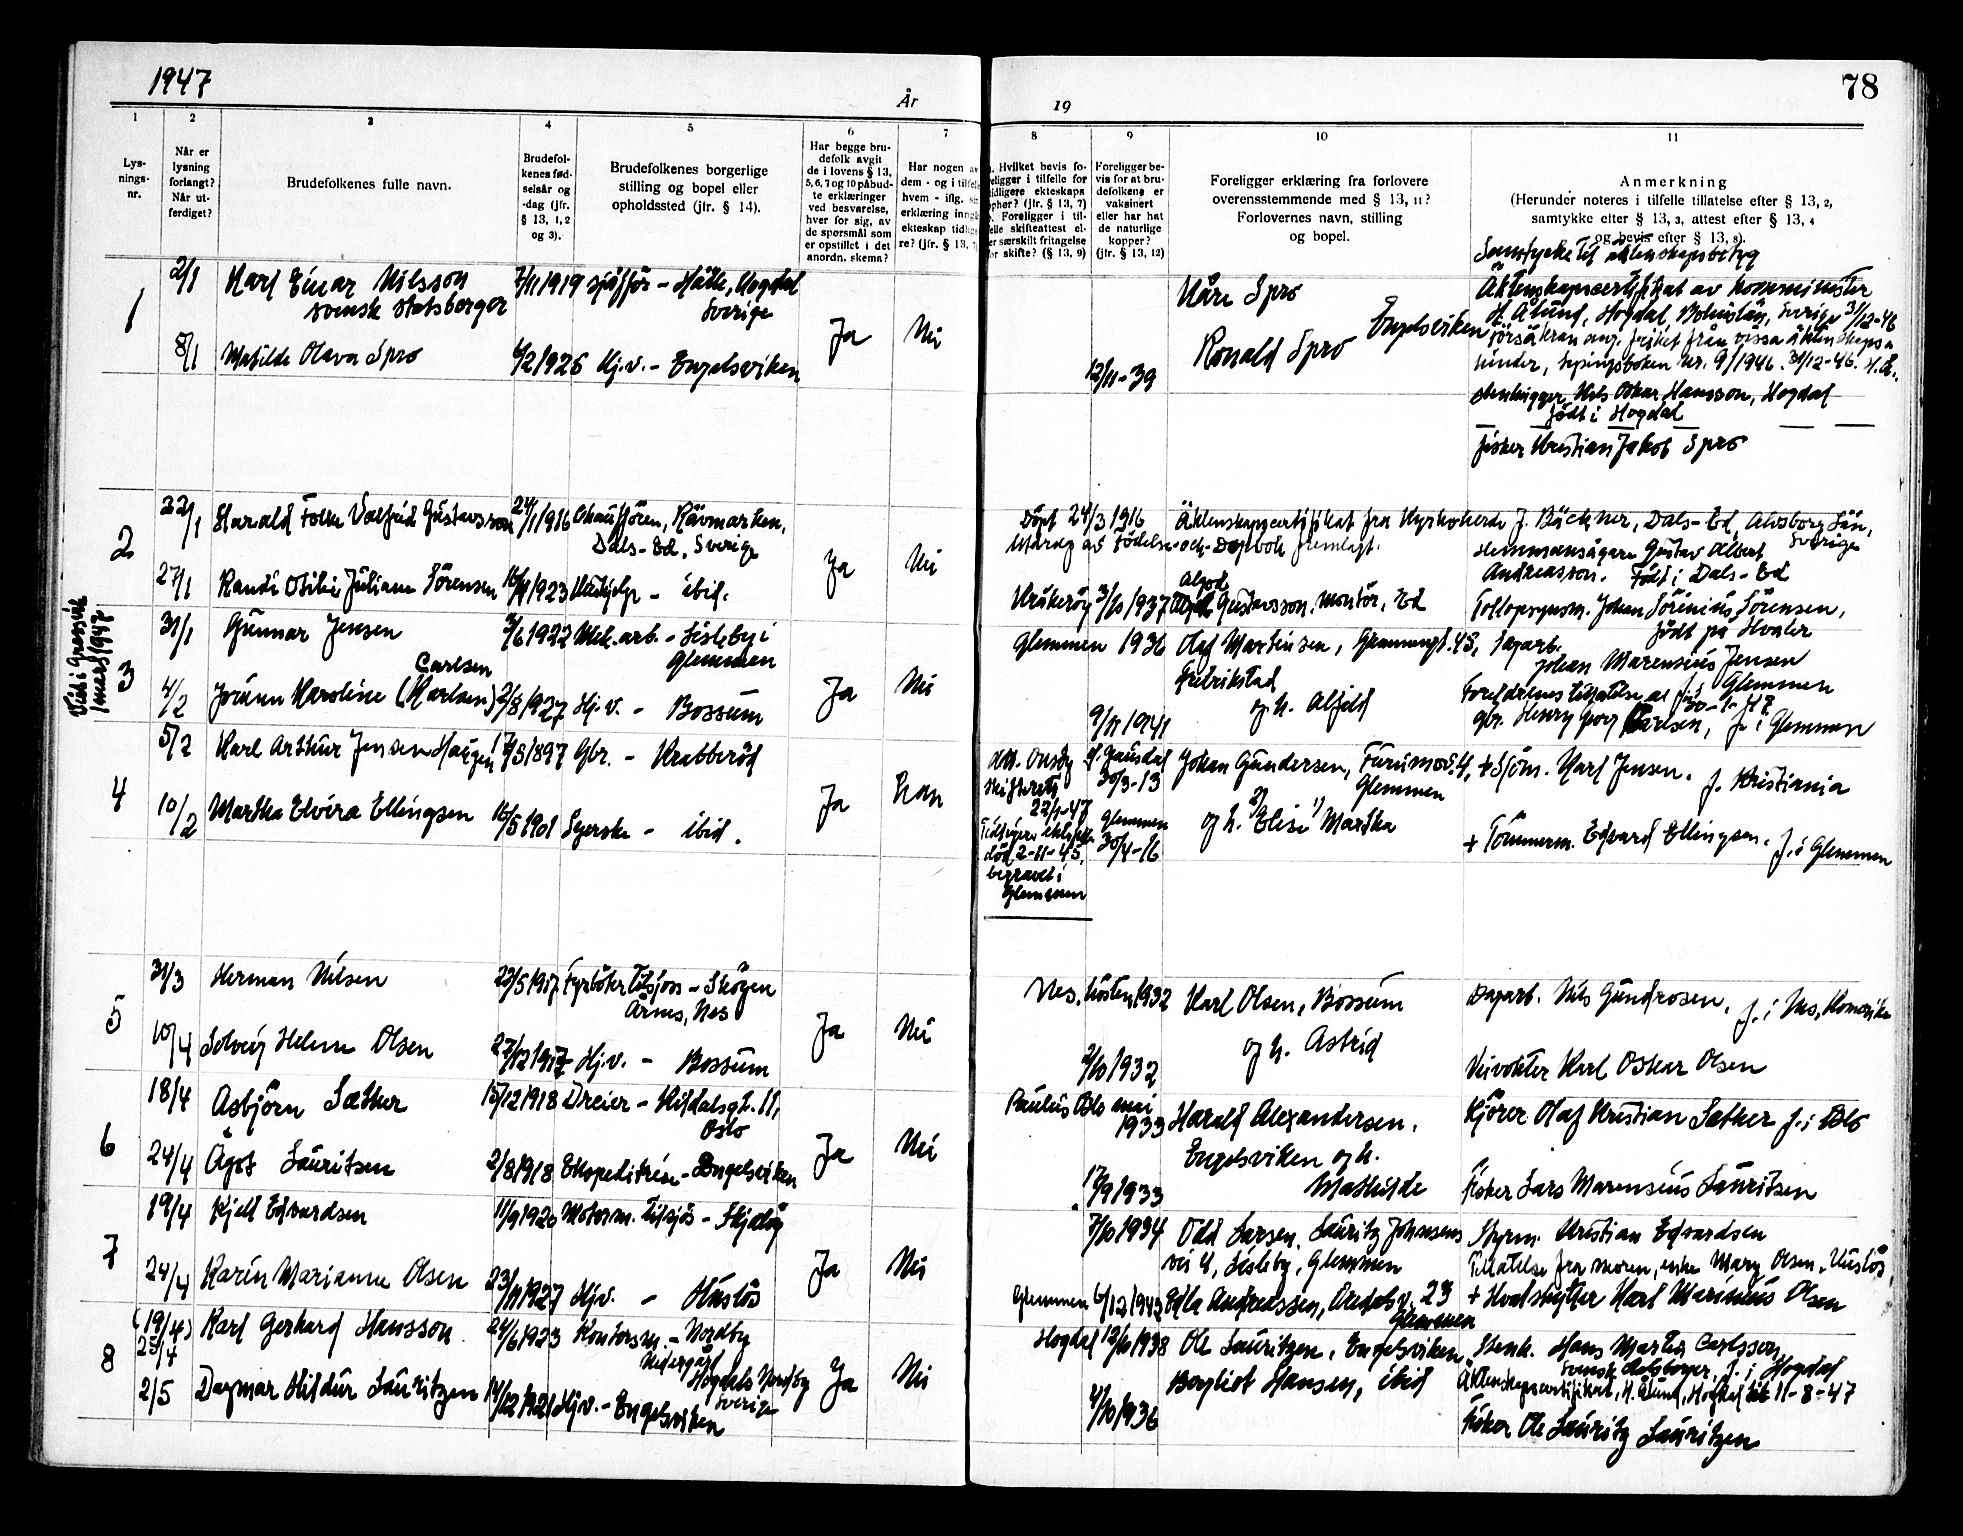 1947
År
19
78
1
2
3
4
5
6
7
8
9
10
11
Lys-
nings-
nr.
Når er
lysning
forlangt?
Når ut-
ferdiget?
Brudefolkenes fulle navn.
Brudefol-
kenes fød-
selsår og
-dag (jfr.
§ 13, 1, 2
og 3).
Brudefolkenes borgerlige
stilling og bopel eller
opholdssted (jfr. § 14).
Har begge bru-
defolk avgit
de i lovens § 13,
5, 6, 7 og 10 påbud-
te erklæringer
ved besvarelse,
hver for sig, av
de spørsmål som
er opstillet i det
anordn. skema?
Har nogen av
dem - og i tilfelle
hvem - iflg.
erklæring inngå
ekteskap tidlige
re? (jfr. § 13,
Hvilket bevis fo-
religger i tilfelle for
tidligere ekteskaps
ophør? (jfr. § 13, 7)
Foreligger i til-
felle skifteattest el-
ler særskilt fritagelse
for skifte? (§ 13, 9)
Foreligger be-
vis for at bru-
defolkene er
vaksinert
eller har hat
de naturlige
kopper?
(jfr. § 13, 12)
Foreligger erklæring fra forlovere
overensstemmende med § 13, 11?
Forlovernes navn, stilling
og bopel.
Anmerkning
(Herunder noteres i tilfelle tillatelse efter § 13, 2,
samtykke efter § 13, 3, attest efter § 13, 4
og bevis efter § 13, 8).
1
2/1
Karl Einar Nilsson
svensk statsborger
7/11 1919 sjåfför - Hälle, Hogdal
Sverige
8/1
Matilde Olava Spro
6/2 1926 Hj.v. - Engelsviken
Ja
Nei
12/11-39
Kåre Spro
Ronald Spro
Engelsviken
Samtycke til äktenskapsbetyg
Äktenskapscertifikat av komminister
H. Ålund, Hogdal, Bohuslän, Sverige 31/12-46
försäkran ang. frihet från vissa äktenskaps
hinder, lysingsboken nr. 9/1946. 31/12-46. H.Å.
stenhugger Nils Oskar Hansson, Hogdal
född i Hogdal
fisker Kristian Jakob Spro
2
22/1
Harald Folke Valfrid Gustavsson
24/1 1916 Chaufføren, Rävmarken,
Dals-Ed, Sverige
27/1
Randi Otilie Juliane Sörensen
16/4 1923 Hushjelp - ibid.
Ja
Nei
Döpt 24/3 1916
Utdrag av Födelse- och Dopbok fremlagt.
Äktenskapscertifikat fra Kyrkoherde J. Bäckner, Dals-Ed, Älvsborg Län,
Sverige
Hemmansägare Gustav Albert
Andreasson. Född i Dals-Ed
Kråkeröy 3/10 1937
Gustavsson, montör, Ed
Johan Sörinius Sörensen,
född på Hvaler
Viet i Gressvik
1 mars 1947
3
31/1
Gunnar Jensen
3/6 1922 Mek. arb. - Lisleby i
Glemmen
4/2
Carlsen
Johann Karoline (Karlsen)
2/8 1927 Hj.v. - Bossum
Ja
Nei
Glemmen 1936
9/11 1941
Olaf Martinsen,
Fredrikstad
og h. Alfild
Sagarb.
Johan Marensius Jensen
f. i Glemmen
Foreldrenes tillatelse av 30-1-47
gbr. Henry Georg Carlsen, f. i Glemmen
4
5/2
Karl Arthur Jensen Haugen
17/8 1897 Gbr. - Krabberöd
10/2
Martha Elvira Ellingsen
16/5 1901 Syerske - ibid.
Ja
Han
Att. Onsöy
skifterett
22/1-47
Tidligere ektefelle
död 2-11-45,
begravet i
Glemmen
Ö. Gausdal
30/3-13
Glemmen
30/4-16
Johan Gundersen, Furumov. 4,
Glemmen
og h. 2) Elise 1) Martha
+ Sjöm. Karl Jensen. f. Kristiania
+ Tömmerm. Edvard Ellingsen. f. i Glemmen
5
31/3
Herman Nilsen
22/5 1917 Fyrböter tilsjös - Skogen
Årnes, Nes
10/4
Solveig Helene Olsen
27/12 1917 Hj.v. - Bossum
Ja
Nei
Nes, hösten 1932
2/10 1932
Karl Olsen, Bossum
og h. Astrid
Dagarb. Nils Gundrosen, f. i Nes, Romerike
Veivokter Karl Oskar Olsen
6
18/4
Asbjörn Sæther
15/12 1918 Dreier - Uelandsgt. 11,
Oslo
24/4
Ågot Lauritsen
2/8 1918 Ekspeditrise - Engelsviken
Ja
Nei
Paulus Oslo mai
1933
17/9 1933
Harald Alexandersen,
Engelsviken og h.
Mathilde
Kjörer Olaf Kristian Sæther f. i Oslo
Fisker Lars Marensius Lauritsen
7
19/4
Kjell Edvardsen
11/9 1920 Motorm. tilsjös - Skjelöy
24/4
Karin Marianne Olsen
23/11 1927 Hj.v. - Husløs
Ja
Nei
7/10 1934
Glemmen 6/12 1943
Odd Larsen, Lauritz Johnsens
vei 4, Lisleby, Glemmen
Edla Andreassen, Åredalsv. 23
Glemmen
Styrm. Kristian Edvardsen
Tillatelse fra moren, enke Mary Olsen, Huslös,
+ Hvalskytter Karl Marinius Olsen
8
(19/4)
25/4
Karl Gerhard Hansson
24/6 1923 Kontorsm. - Nordby
Nedergård
Hogdals Nordby
Sverige
2/5
Dagmar Hildur Lauritzen
14/12 1921 Hj.v. - Engelsviken
Ja
Nei
Hogdal 12/10 1938
4/10 1936
Ole Lauritzen, Engelsviken
Borgliot Hansen, ibid
Stenh. Hans Martin Carlsson,
svensk statsborger, f. i Hogdal
Äktenskapscertifikat, H. Ålund, Hogdal til 11-8-47
Fisker Ole Lauritz Lauritzen